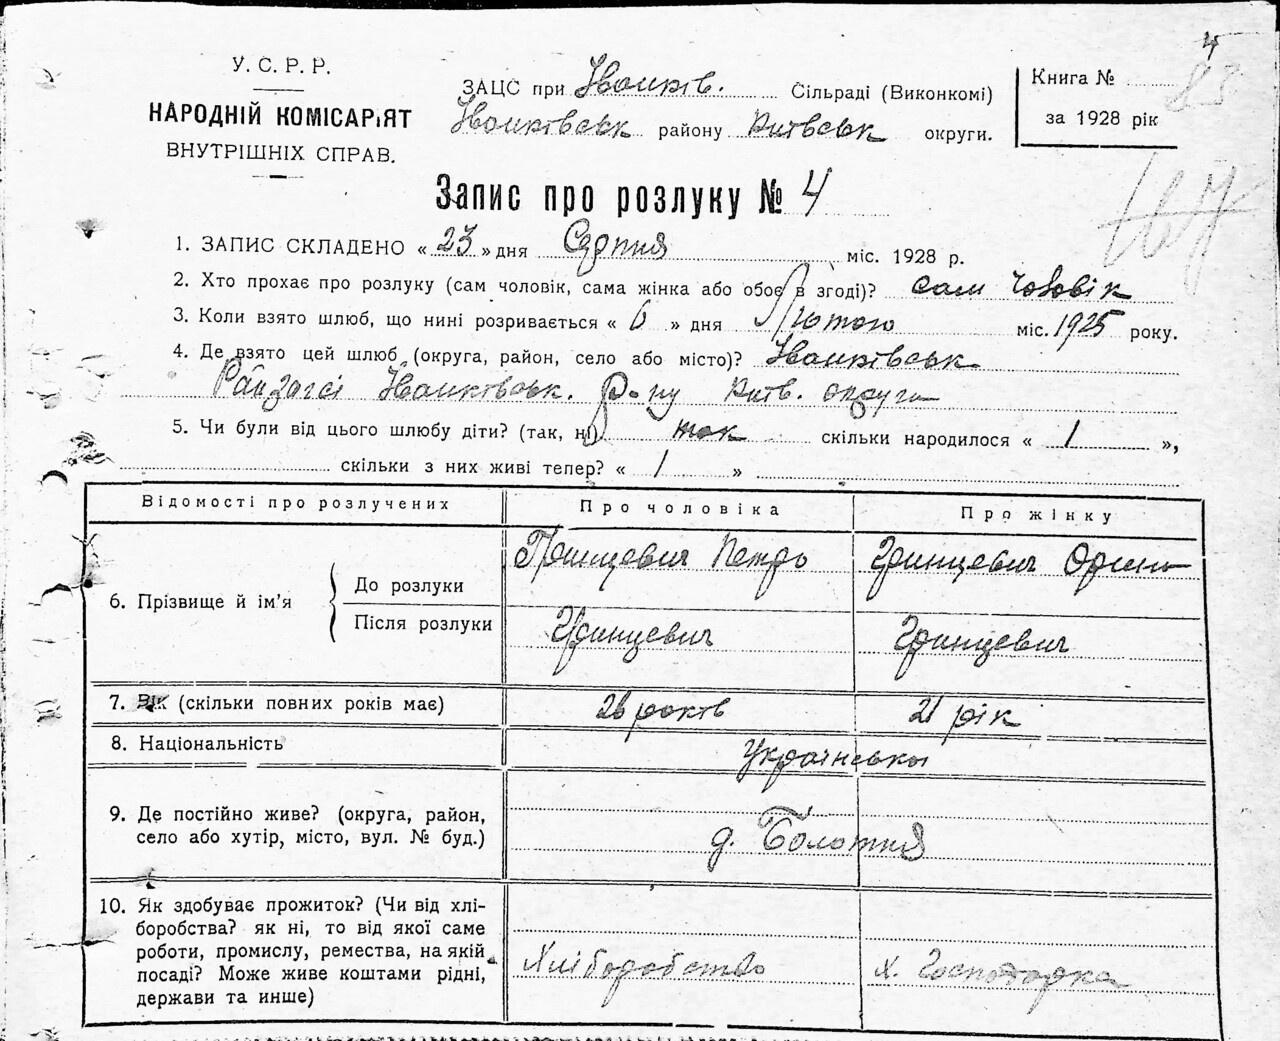 4
У. С. Р. Р.
НАРОДНІЙ КОМІСАРІЯТ
ВНУТРІШНІХ СПРАВ.
ЗАЦС при Іванків. Сільраді (Виконкомі)
Іванківськ району Київськ округи.
Книга № 83
за 1928 рік
Запис про розлуку № 4
1. ЗАПИС СКЛАДЕНО « 23 » дня Серпня міс. 1928 р.
2. Хто прохає про розлуку (сам чоловік, сама жінка або обоє в згоді)? сам чоловік
3. Коли взято шлюб, що нині розривається « 6 » дня Лютого міс. 1925 року.
4. Де взято цей шлюб (округа, район, село або місто)? Іванківськ
Райзагсі Іванківськ. р-ну Київ. округи
5. Чи були від цього шлюбу діти? (так, ні) так скільки народилося « 1 »,
скільки з них живі тепер? « 1 »
Відомості про розлучених Про чоловіка Про жінку
6. Прізвище й ім'я
До розлуки Гринцевич Петро Гринцевич Орина
Після розлуки Гринцевич Гринцевич
7. Вік (скільки повних років має) 26 років 21 рік
8. Національність Українська
9. Де постійно живе? (округа, район,
село або хутір, місто, вул. № буд.) д. Болотня
10. Як здобуває прожиток? (Чи від хлі-
боробства? як ні, то від якої саме
роботи, промислу, ремества, на якій
посаді? Може живе коштами рідні,
держави та инше) Хліборобство х. Господарка